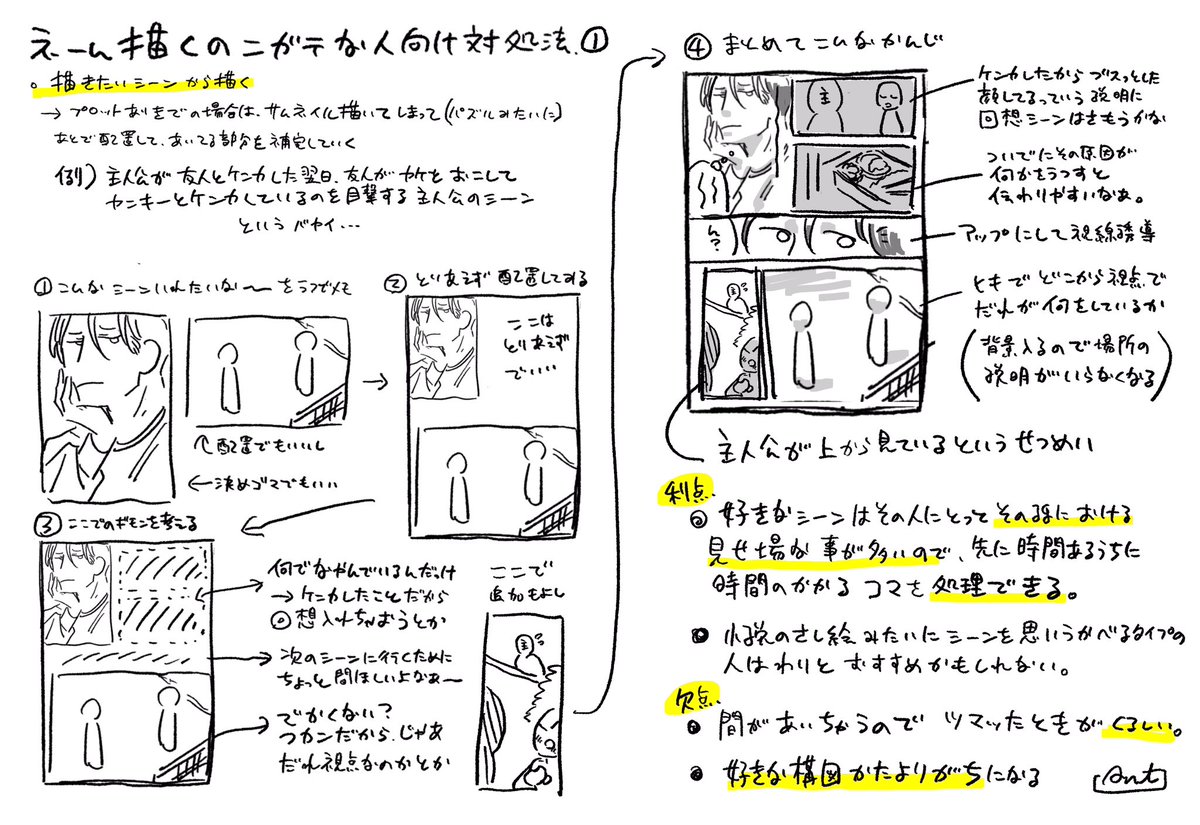 ネーム描くのニガテな人向け対処法.①
○描きたいシーンから描く
→プロットありきでの場合は、サムネイル描いてしまって(パズルみたいに)
あとで配置して、あいてる部分を補完していく
例) 主人公が友人とケンカした翌日、友人がカケをおこして
ヤンキーとケンカしているのを目撃する主人公のシーン
というバヤイ…
①こんなシーンいれたいな〜をラフでメモ
↑配置でもいいし
←決めゴマでもいい
→
②とりあえず配置してみる
ここは
とりあえず
でいい
③ここでのギモンを考える
何でなやんでいるんだっけ
→ケンカしたことだから
回想入れちゃおうとか
次のシーンに行くために
ちょっと間ほしいよなぁ〜
でかくない?
フカンだから、じゃあ
だれ視点なのかとか
ここで
追加もよし
主
④まとめてこんなかんじ
主
ん?
主
ケンカしたからブスっとした
顔してるっていう説明に
回想シーンはさもうかな
ついでにその原因が
何かをうつすと
伝わりやすいなぁ。
アップにして視線誘導
ヒキでどこから視点で
だれが何をしているか
(背景入るので場所の
説明がいらなくなる)
主人公が上から見ているというせつめい
利点
◎好きなシーンはその人にとってその話における
見せ場な事が多いので、先に時間あるうちに
時間のかかるコマを処理できる。
●小説のさし絵みたいにシーンを思いうかべるタイプの
人はわりとおすすめかもしれない。
欠点
●間があいちゃうのでツマッたときがくるしい。
●好きな構図かたよりがちになる
Ant